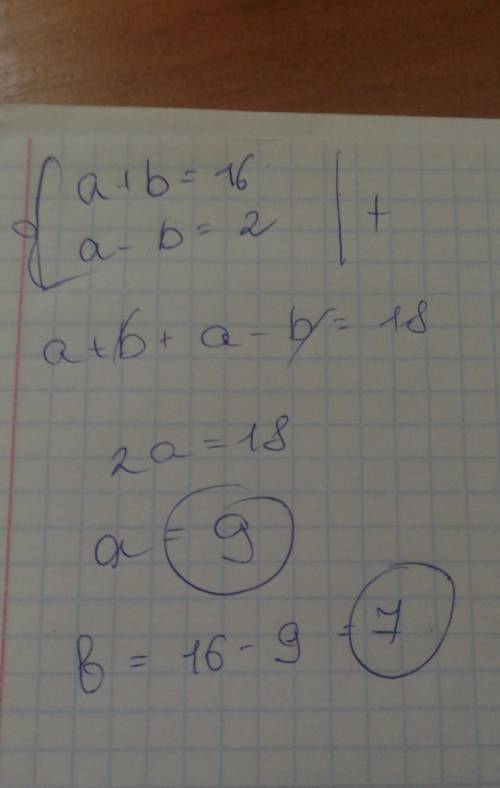 a+b=16
a-b=2 | +
a+b+a-b=18
2a=18
a=9
b=16-9=7